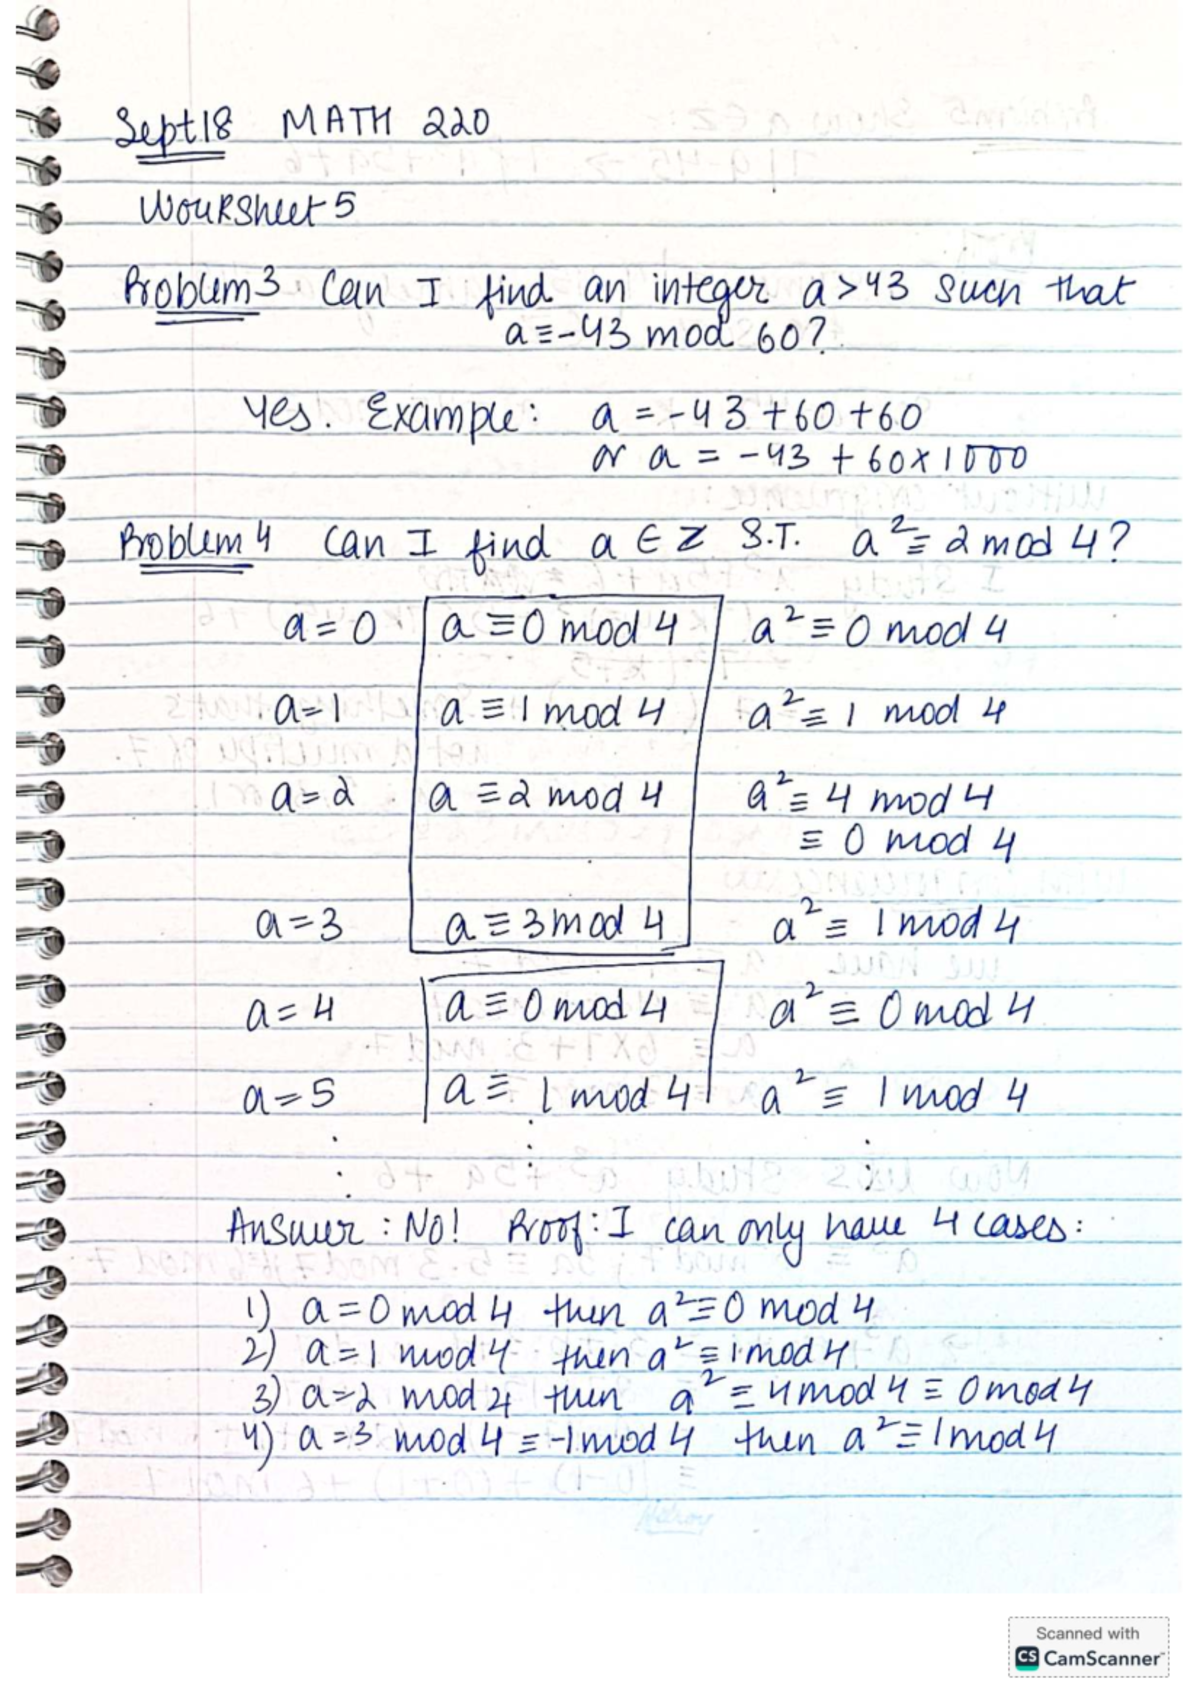 Sept 18 MATH 220
Worksheet 5
Problem 3 Can I find an integer a > 43 such that
a ≡ -43 mod 60?
Yes. Example: a = -43 + 60 + 60
or a = -43 + 60 × 1000
Problem 4 Can I find a ∈ Z S.T. a² ≡ 2 mod 4?
a = 0 a ≡ 0 mod 4 a² ≡ 0 mod 4
a = 1 a ≡ 1 mod 4 a² ≡ 1 mod 4
a = 2 a ≡ 2 mod 4 a² ≡ 4 mod 4
≡ 0 mod 4
a = 3 a ≡ 3 mod 4 a² ≡ 1 mod 4
a = 4 a ≡ 0 mod 4 a² ≡ 0 mod 4
a = 5 a ≡ 1 mod 4 a² ≡ 1 mod 4
⋮ ⋮ ⋮
Answer: No! Proof: I can only have 4 cases:
1) a = 0 mod 4 then a² ≡ 0 mod 4
2) a = 1 mod 4 then a² ≡ 1 mod 4
3) a = 2 mod 4 then a² ≡ 4 mod 4 ≡ 0 mod 4
4) a = 3 mod 4 ≡ -1 mod 4 then a² ≡ 1 mod 4
Scanned with
CS CamScanner